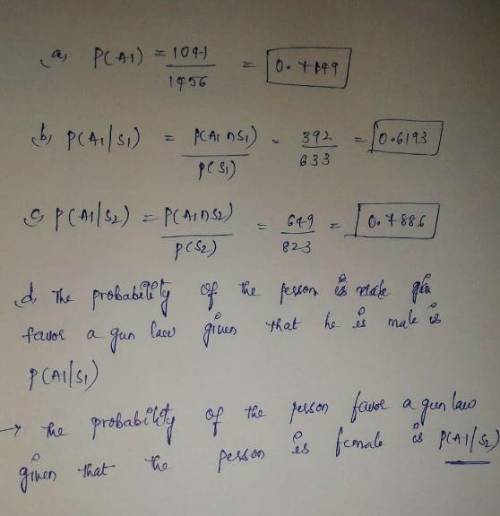 a, P(A1) = 1041 / 1456 = 0.7149
b, P(A1/S1) = P(A1∩S1) / P(S1) = 392 / 633 = 0.6193
c, P(A1/S2) = P(A1∩S2) / P(S2) = 649 / 823 = 0.7886
d, The probability of the person is
favor a gun law given that he is male is
P(A1/S1)
→ The probability of the person favor a gun law
given that the person is female is P(A1/S2)